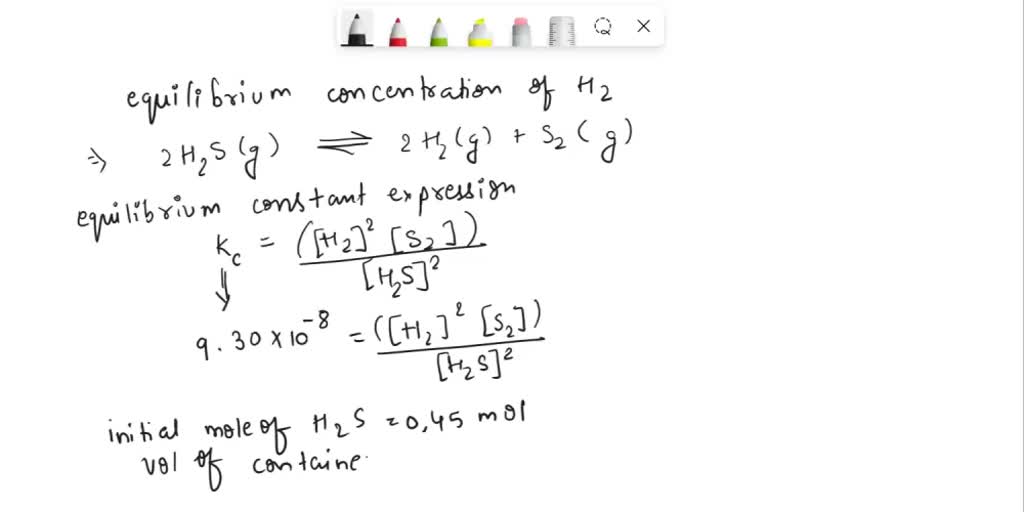 equilibrium concentration of H2
⇒ 2H2S(g) ⇌ 2H2(g) + S2(g)
equilibrium constant expression
Kc = ([H2]² [S2]) / [H2S]²
⇓
9.30×10⁻⁸ = ([H2]² [S2]) / [H2S]²
initial mole of H2S = 0,45 mol
vol of containe.